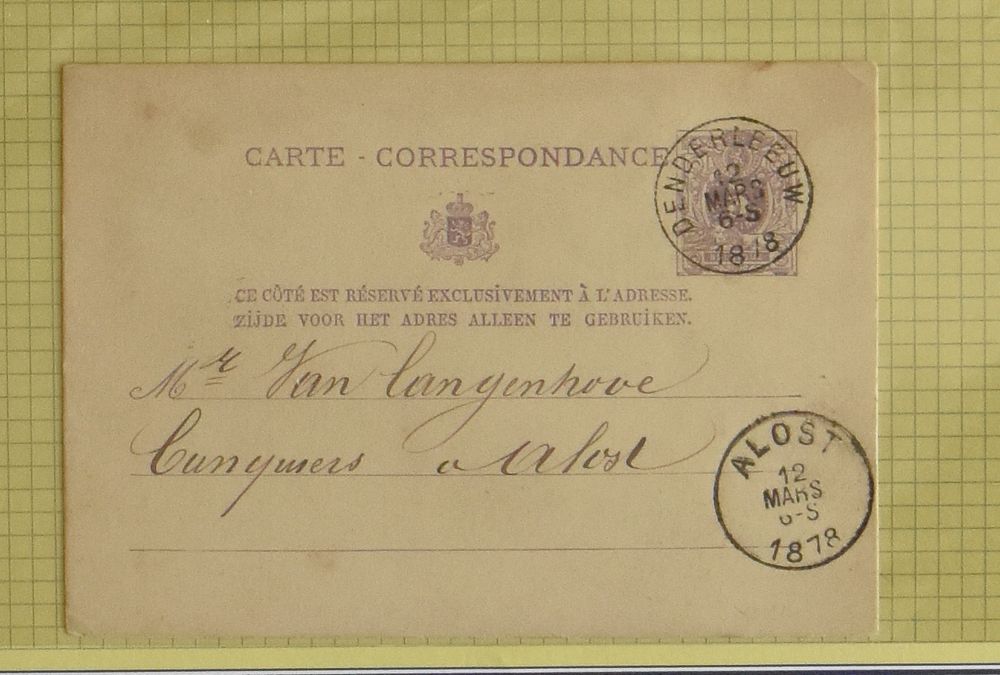 CARTE - CORRESPONDANCE
DENDERLEEUW
12
MARS
6-S
1878
CE CÔTÉ EST RÉSERVÉ EXCLUSIVEMENT À L'ADRESSE.
ZIJDE VOOR HET ADRES ALLEEN TE GEBRUIKEN.
Mr Van Langenhove
Banquiers a Alost
ALOST
12
MARS
6-S
1878